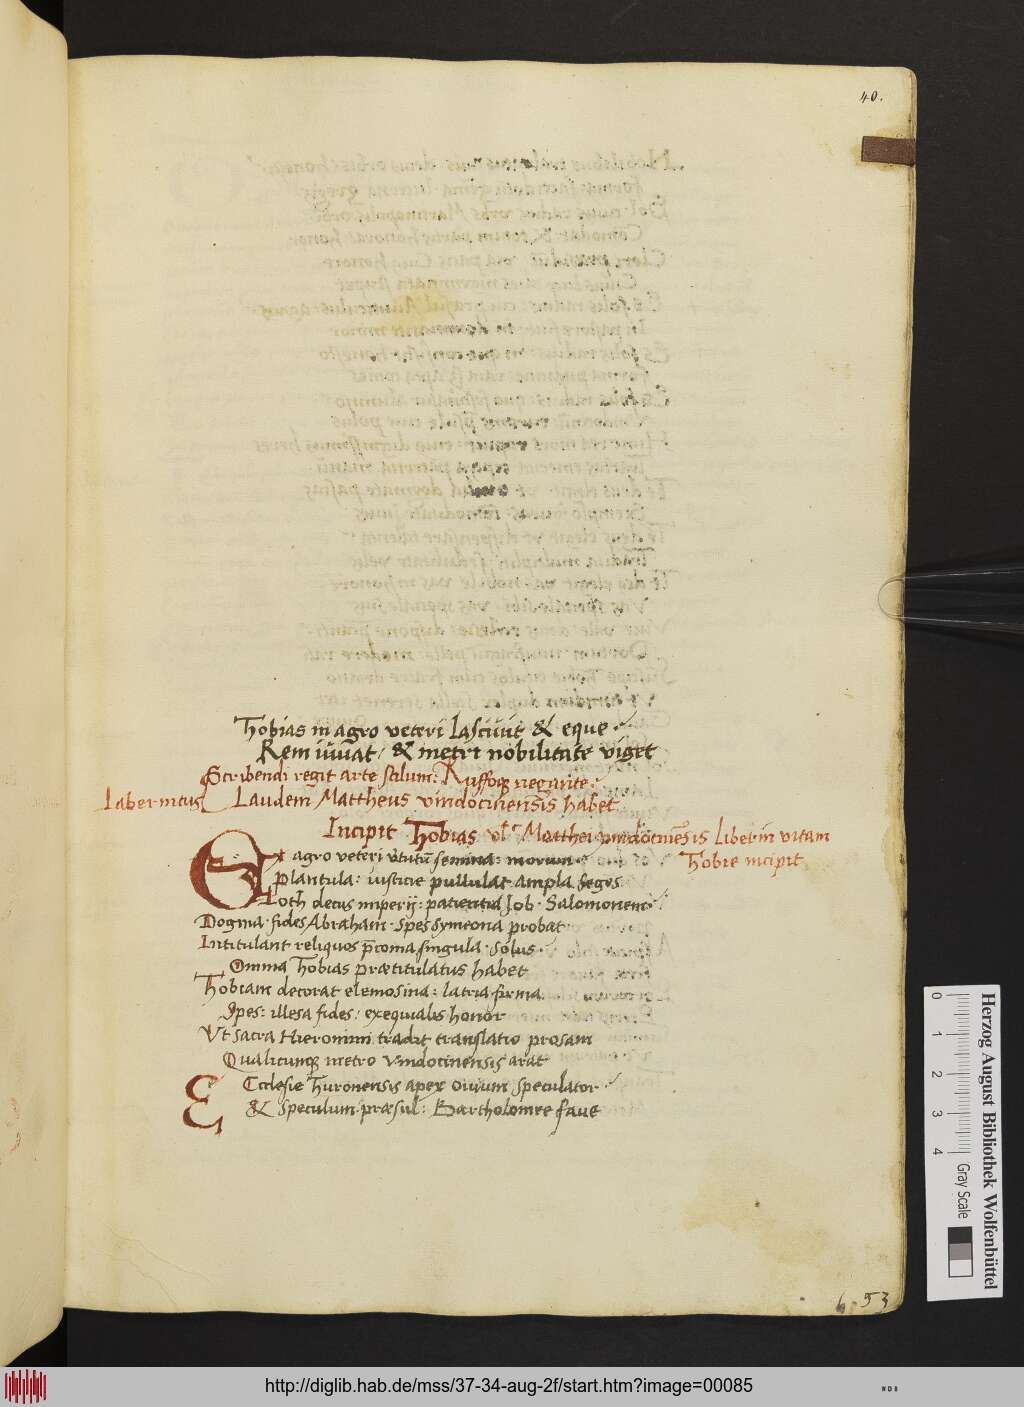 40.
Thobias in agro veteri lascivit & eque
Rem iuuat: & metri nobilitate viget
Scribendi regit arte stilum: Ruffoq; negante
Laberintus Laudem Mattheus vindocinensis habet
Incipit Thobias vl Matthei vindocinēsis Liber in vitam
Thobie incipit
Ex agro veteri v̄tutū semina: morum
Plantula: iusticie pullulat ampla seges
Loth decus imperij: patientia Job. Salomonem
Dogma. fides Abraham. spes symeona probat
Intitulant reliquos p̄conia singula. Solus
Omnia Thobias prætitulatus habet
Thobiam decorat elemosina: latria firma
Spes: illesa fides: exequialis honor
Vt sacra Hieronimi tradit translatio prosam
Qualicunq; metro vindocinensis arat
Ecclesie Thuronensis apex ouium speculator
& speculum præsul: Bartholomee faue
53
Herzog August Bibliothek Wolfenbüttel
0 1 2 3 4
Gray Scale
http://diglib.hab.de/mss/37-34-aug-2f/start.htm?image=00085